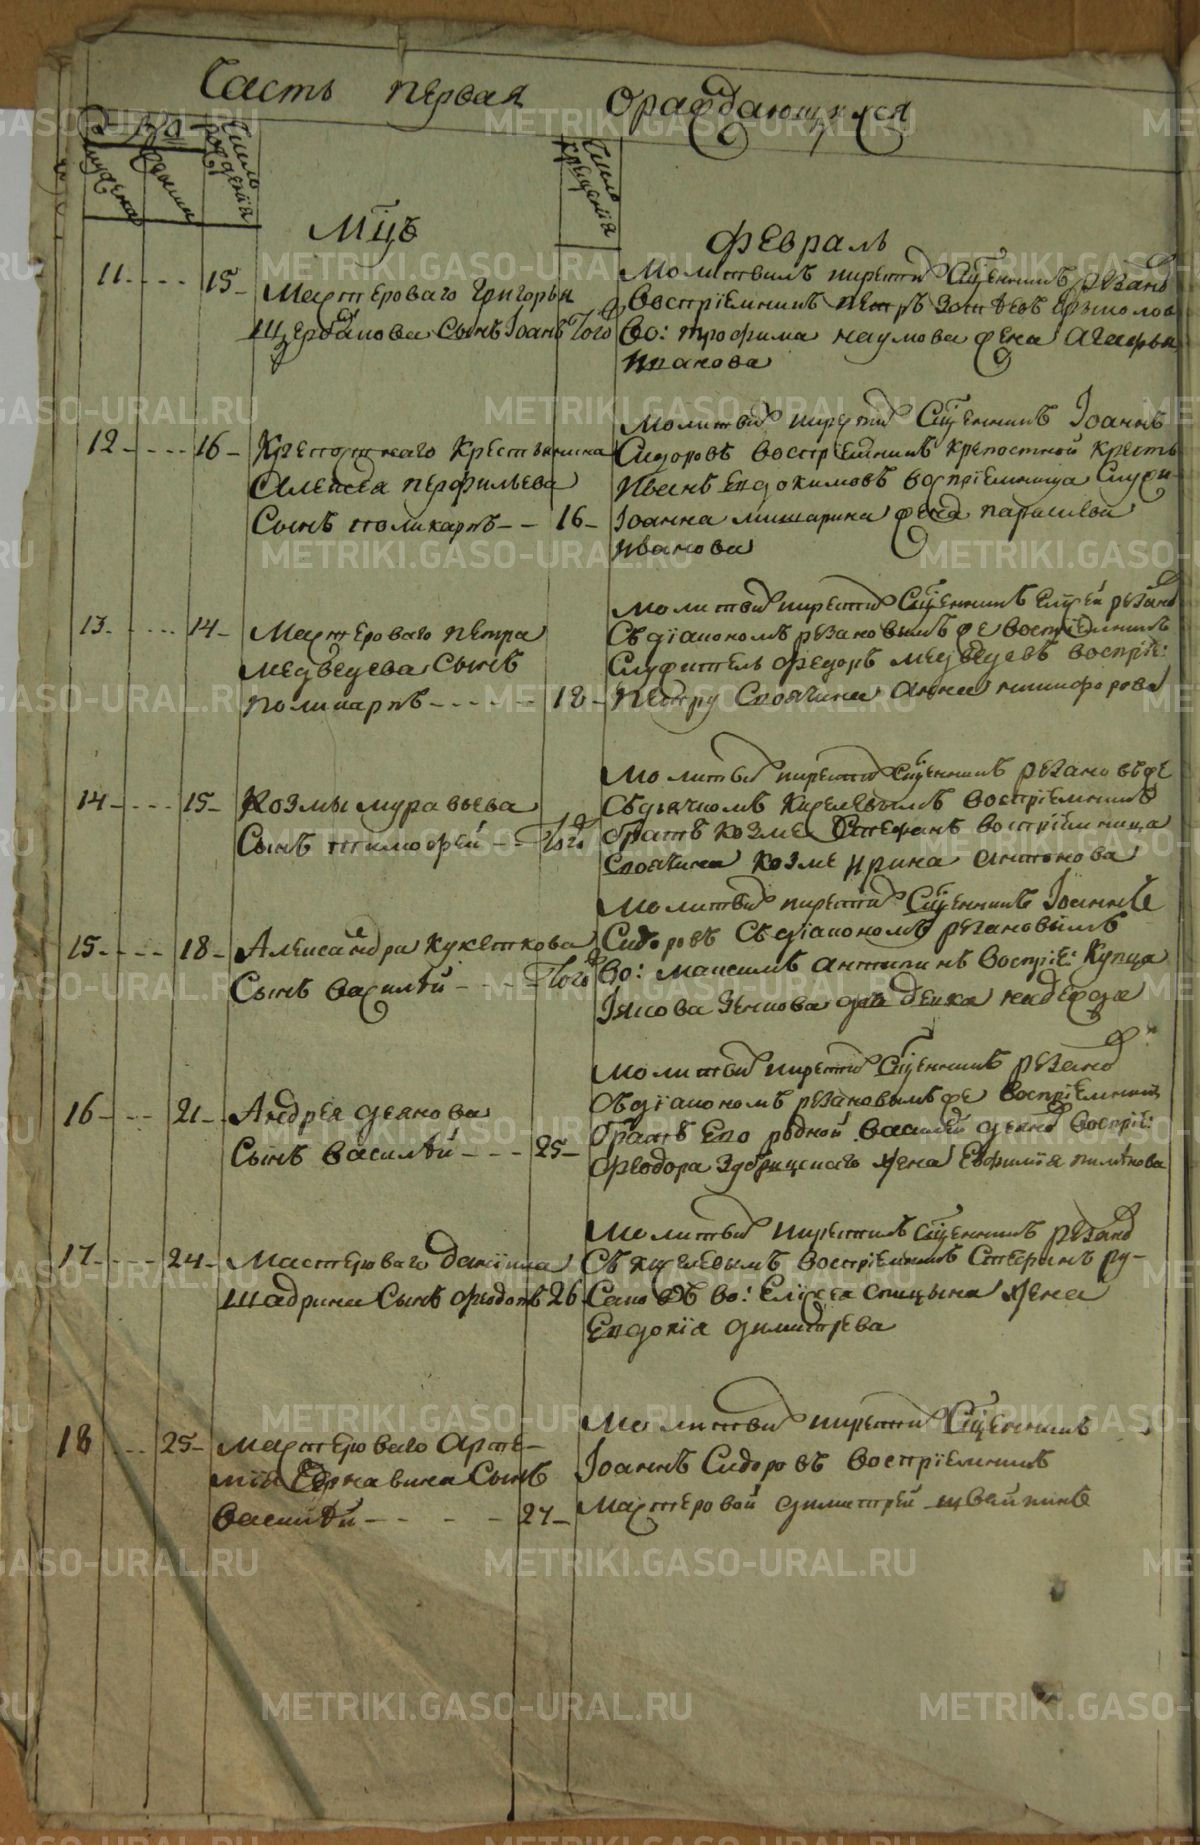 Часть первая ораждающихся
Число рождения
мужеска
женска
Число крещения
Мцъ Февраль
11 15 Мастероваго Григорья
Щербакова Сынъ Іоанъ Того
Молитвилъ и крести Сщенникъ резано
Воспріемникъ Петръ
во: трофима наумова жена Агафья
Иванова
12 16 Крепостнаго Крестьянина
Алексея перфильева
Сынъ поликарпъ 16
Молитви и крести Сщенникъ Іоаннъ
Сидоровъ воспріемникъ крепостной кресть
Иванъ Евдокимовъ воспріемница Служи
Іоанна мишарина жена параскева
иванова
13 14 Мастероваго петра
медведева Сынъ
поликарпъ 18
молитви и крести Сщенникъ резано
Съ діакономъ резановымъ же воспріемникъ
Служитель Федоръ медведевъ воспріе:
Петру Своячина анна никифорова
14 15 Козмы муравьева
Сынъ тимофей Того
молитви и крести сщенникъ резановъ же
Съ дьячкомъ Киселевымъ воспріемникъ
братъ козме Стефанъ воспріемница
Своячина козме ирина антонова
15 18 Александра кукешкова
Сынъ василѣй Того
молитви и крести Сщенникъ Іоаннъ
Сидоровъ Съ діакономъ резановымъ
во: максимъ антипинъ воспріе: купца
Іякова Земкова девка надежда
16 21 Андрея деянова
Сынъ василѣй 25
молитви и крести Сщенникъ резано
Съ діакономъ резановымъ же воспріемник
братъ Его родной василей деяно воспріе:
феодора жена Евфимія пименова
17 24 Мастероваго даніила
Шадрина Сынъ феодотъ 26
молитви и крестилъ сщенникъ резано
Съ киселевымъ воспріемникъ Стефанъ ру-
саковъ во: Елисея спицына жена
Евдокія димитрева
18 25 Мастероваго Арте-
мія Сынъ
василѣй 27
Молитви и крести Сщенникъ
Іоаннъ Сидоровъ воспріемникъ
мастеровой димитрей швейкинъ
METRIKI.GASO-URAL.RU